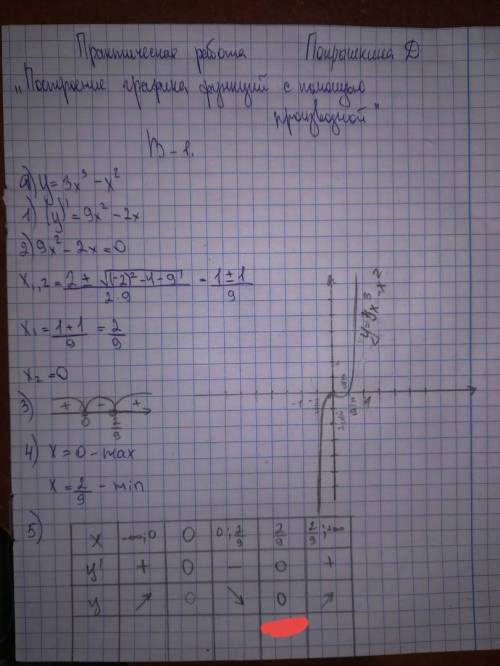 Практическая работа Покрышкина Д
"Построение графика функций с помощью
производной"
В-1.
а) y=3x³-x²
1) (y)'=9x²-2x
2) 9x²-2x=0
x₁,₂=2±√(-2)²-4-9/2·9=1±1/9
x₁=1+1/9=2/9
x₂=0
3) + - +
0 2/9
4) x=0-max
x=2/9-min
y=3x³-x²
-1 1
5)
x -∞;0 0 0;2/9 2/9 2/9;+∞
y' + 0 - 0 +
y ↗ 0 ↘ 0 ↗